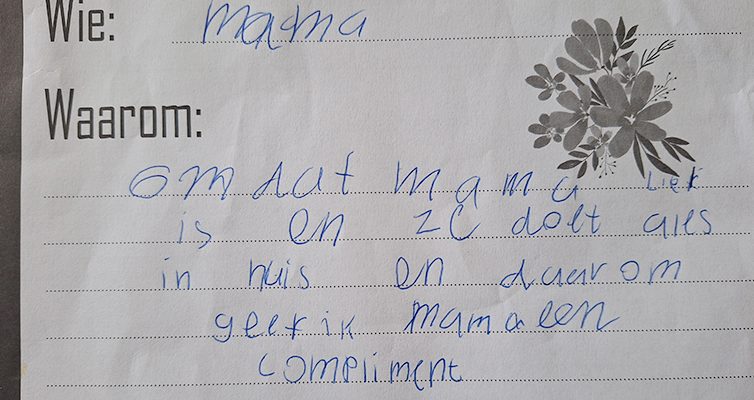 Wie: mama
Waarom:
omdat mama lief
is en ze doet alles
in huis en daarom
geef ik mama een
compliment